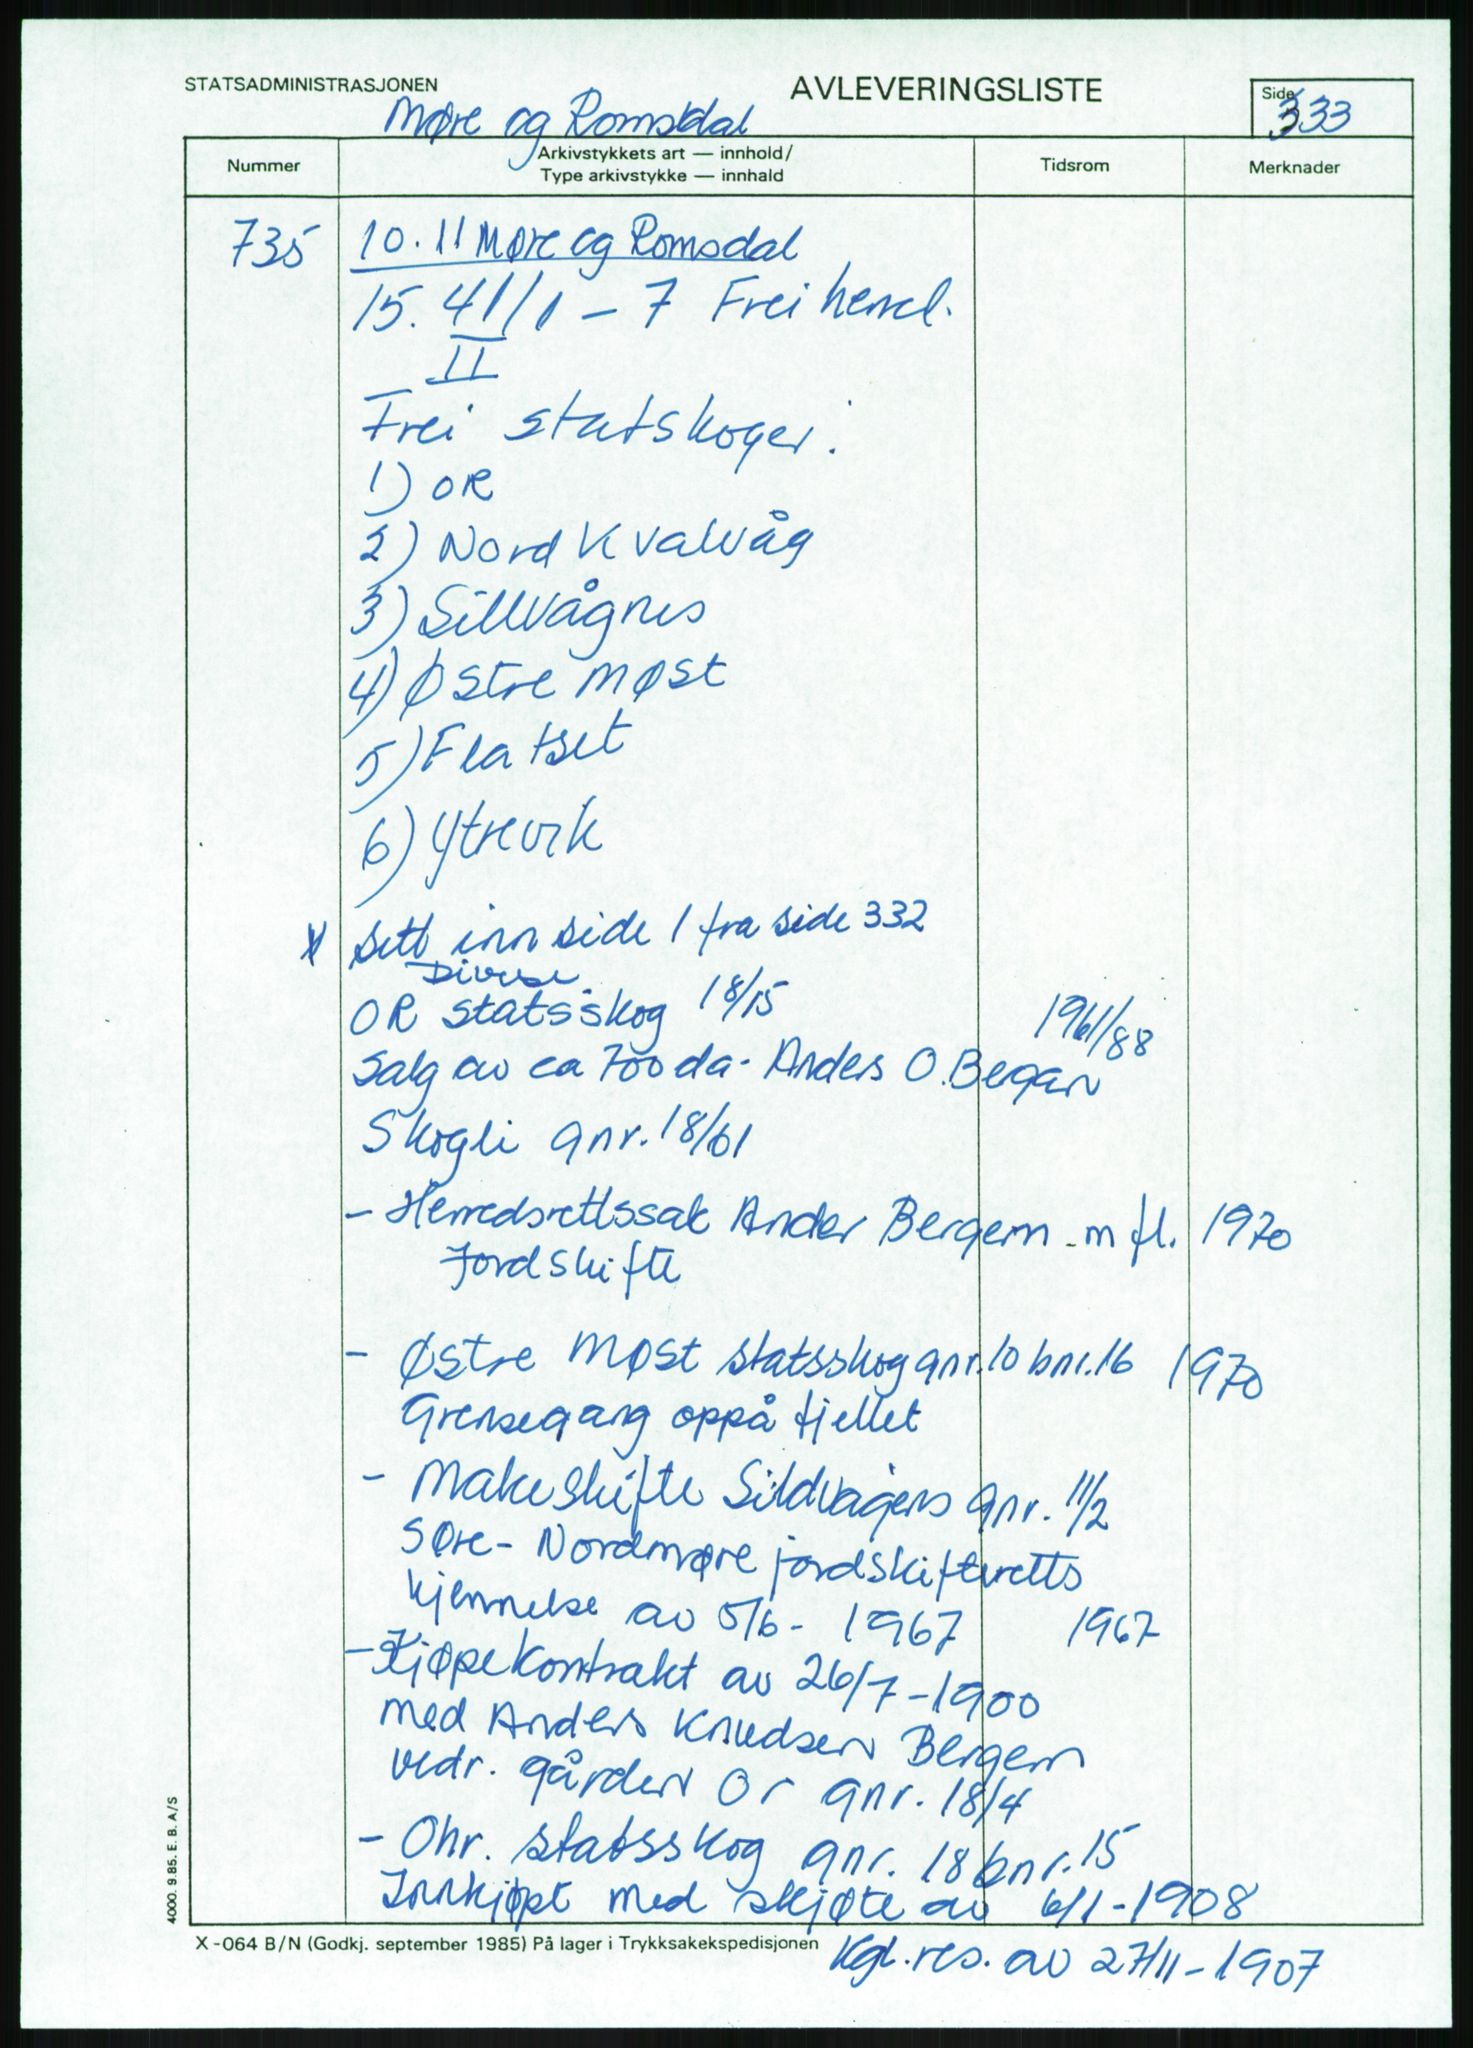 STATSADMINISTRASJONEN
AVLEVERINGSLISTE
Side
333
Møre og Romsdal
Nummer
Arkivstykkets art — innhold/
Type arkivstykke — innhald
Tidsrom
Merknader
735
10.11 Møre og Romsdal
15.41/1 - 7 Frei herred.
II
Frei statskoger.
1) OR
2) Nord Kvalvåg
3) Sillvågnes
4) Østre Møst
5) Flatset
6) Ytrevik
* Sett inn side 1 fra side 332
Diverse
OR statsskog 18/15
1961/88
Salg av ca 700 da - Anders O. Bergan
Skogli gnr. 18/61
- Herredsrettssak Ander Bergem m fl. 1970
Jordskifte
- Østre Møst statsskog gnr. 10 bnr. 16 1970
Grensegang oppå fjellet
- Makeskifte Sildvågens gnr. 11/2
Søre - Nordmøre jordskifteretts
kjennelse av 5/6 - 1967 1967
- Kjøpekontrakt av 26/7 - 1900
med Anders Knudsen Bergem
vedr. gården Or gnr. 18/4
- Ohr. statsskog gnr. 18 bnr. 15
Innkjøpt med skjøte av 6/1 - 1908
Kgl. res. av 27/11 - 1907
4000. 9.85. E. B. A/S
X-064 B/N (Godkj. september 1985) På lager i Trykksakekspedisjonen